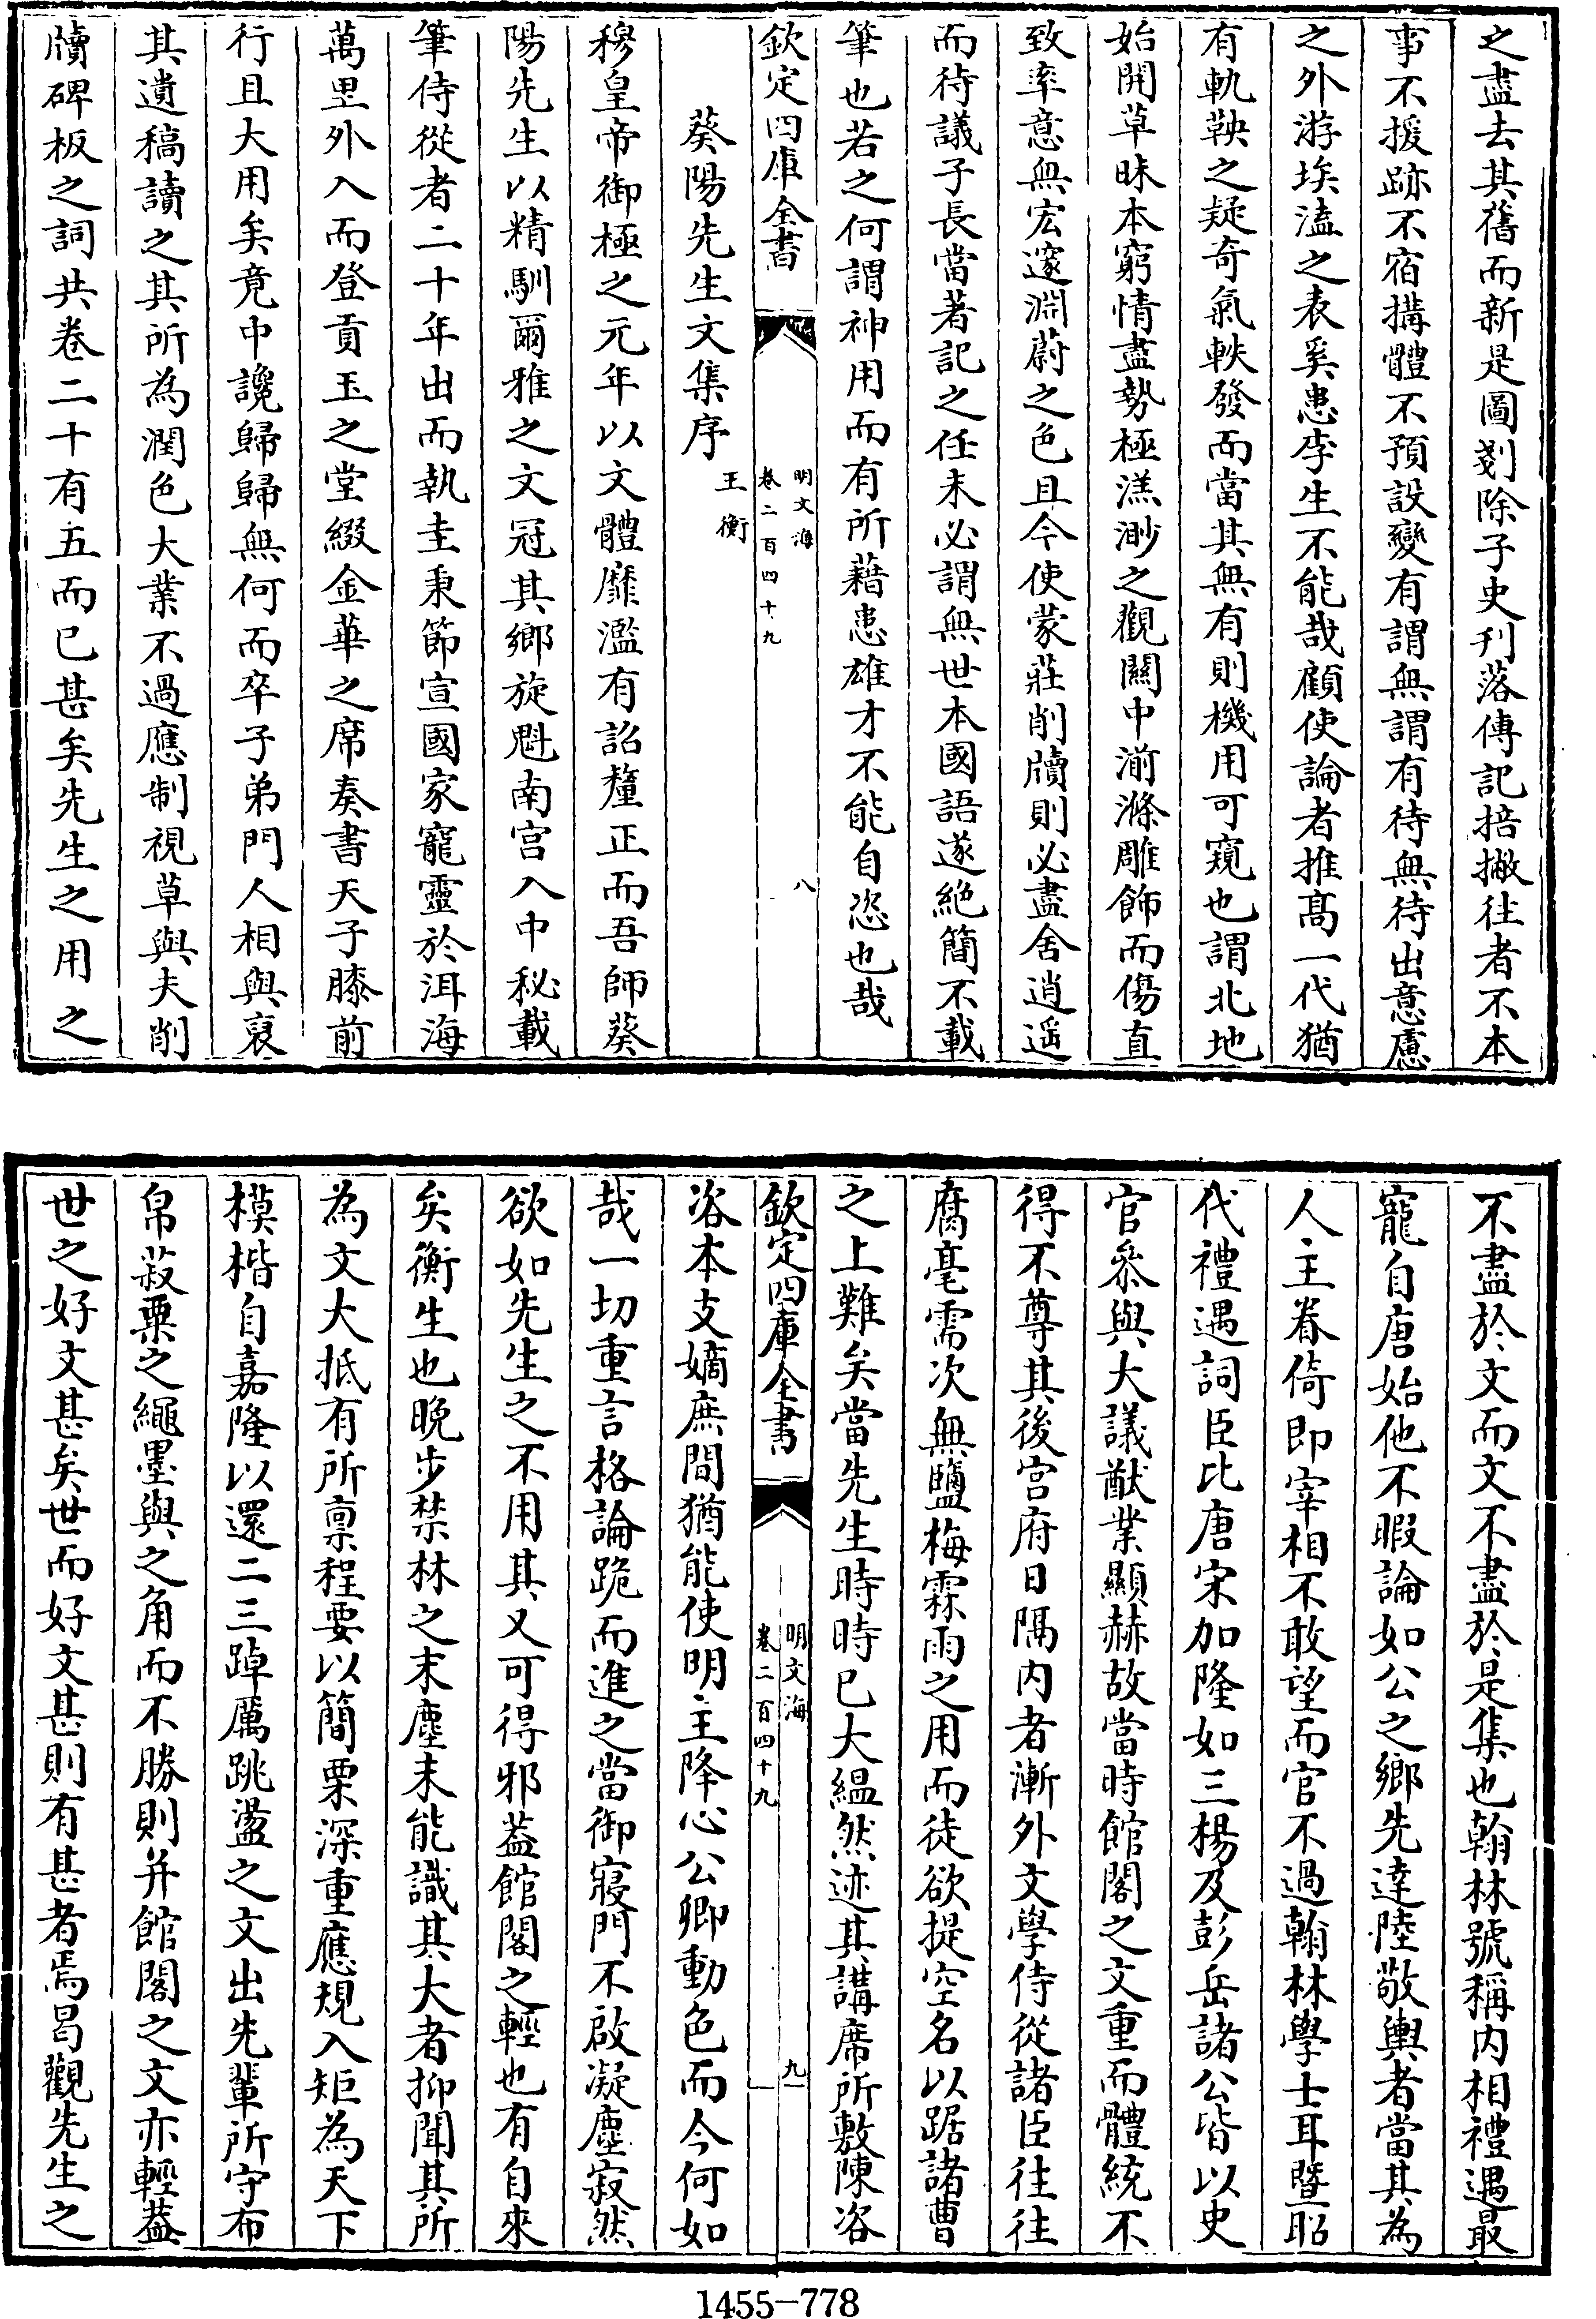 之盡去其舊而新是圖剗除子史刋落傳記掊撇往者不本
事不援跡不宿搆體不預設變有謂無謂有待無待出意慮
之外游埃溘之表奚患李生不能哉顧使論者推髙一代猶
有軌鞅之疑奇氣軼發而當其無有則機用可窺也謂北地
始開草昧本窮情盡勢極渺之觀闗中湔滌雕飾而傷直
致率意無宏邃淵蔚之色且今使蒙莊削牘則必盡舍逍遥
而待議子長當著記之任未必謂無世本國語遂絶簡不載
筆也若之何謂神用而有所藉患雄才不能自恣也哉
欽定四庫全書
明文海
卷二百四十九
八
葵陽先生文集序
王衡
穆皇帝御極之元年以文體靡濫有詔釐正而吾師葵
陽先生以精馴爾雅之文冠其鄉旋魁南宫入中秘載
筆侍從者二十年出而執圭秉節宣國家寵靈於洱海
萬里外入而登貢玉之堂綴金華之席奏書天子膝前
行且大用矣竟中讒歸歸無何而卒子弟門人相與裒
其遺稿讀之其所為潤色大業不過應制視草與夫削
牘碑板之詞共卷二十有五而已甚矣先生之用之
不盡於文而文不盡於是集也翰林號稱内相禮遇最
寵自唐始他不暇論如公之鄉先達陸敬輿者當其為
人主眷倚即宰相不敢望而官不過翰林學士耳暨昭
代禮遇詞臣比唐宋加隆如三楊及彭岳諸公皆以史
官叅與大議猷業顯赫故當時館閣之文重而體統不
得不尊其後宫府日隔内者漸外文學侍從諸臣往往
腐毫需次無鹽梅霖雨之用而徒欲提空名以踞諸曹
之上難矣當先生時時已大緼然迹其講席所敷陳洛
欽定四庫全書
明文海
卷二百四十九
九
洛本支嫡庶間猶能使明主降心公卿動色而今何如
哉一切重言格論跪而進之當御寢門不啟凝塵寂然
欲如先生之不用其又可得邪葢館閣之輕也有自來
矣衡生也晚步禁林之末塵未能識其大者抑聞其所
為文大抵有所禀程要以簡栗深重應規入矩為天下
模楷自嘉隆以還二三踔厲跳盪之文出先輩所守布
帛菽粟之繩墨與之角而不勝則并館閣之文亦輕葢
世之好文甚矣世而好文甚則有甚者焉曷觀先生之
1455-778